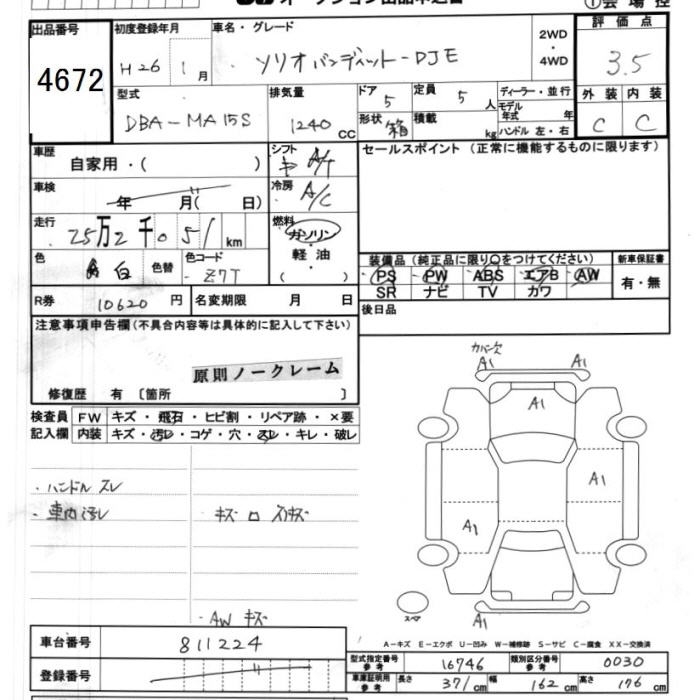 出品番号 初度登録年月 車名・グレード 2WD・4WD 評価点
4672 H26 1月 ソリオバンディット-DJE 3.5
型式 排気量 ドア 5 定員 5人 ディーラー・並行 外装 内装
DBA-MA15S 1240cc 形状 箱 積載 kg モデル年式 年 ハンドル 左・右 C C
車歴 自家用・( ) シフト A/T セールスポイント(正常に機能するものに限ります)
車検 年 月( 日) 冷房 A/C
走行 25万2千051km 燃料 ガソリン・軽油( )
色 白 色替 色コード Z7T 装備品(純正品に限り○をつけてください) 新車保証書
PS PW ABS エアB AW 有・無
SR ナビ TV カワ
R券 10620円 名変期限 月 日 後日品
注意事項申告欄(不具合内容等は具体的に記入して下さい)
原則ノークレーム
修復歴 有〔箇所 〕
カバー欠
A1 A1
A1
A1
A1
A1
検査員 FW キズ・飛石・ヒビ割・リペア跡・×要
記入欄 内装 キズ・汚レ・コゲ・穴・スレ・キレ・破レ
・ハンドルスレ
・車内汚レ
・AWキズ
スペア
A-キズ E-エクボ U-凹み W-補修跡 S-サビ C-腐食 XX-交換済
車台番号 811224
型式指定番号参考 16746 類別区分番号参考 0030
登録番号
車庫証明用参考 長さ 371cm 幅 162cm 高さ 176cm